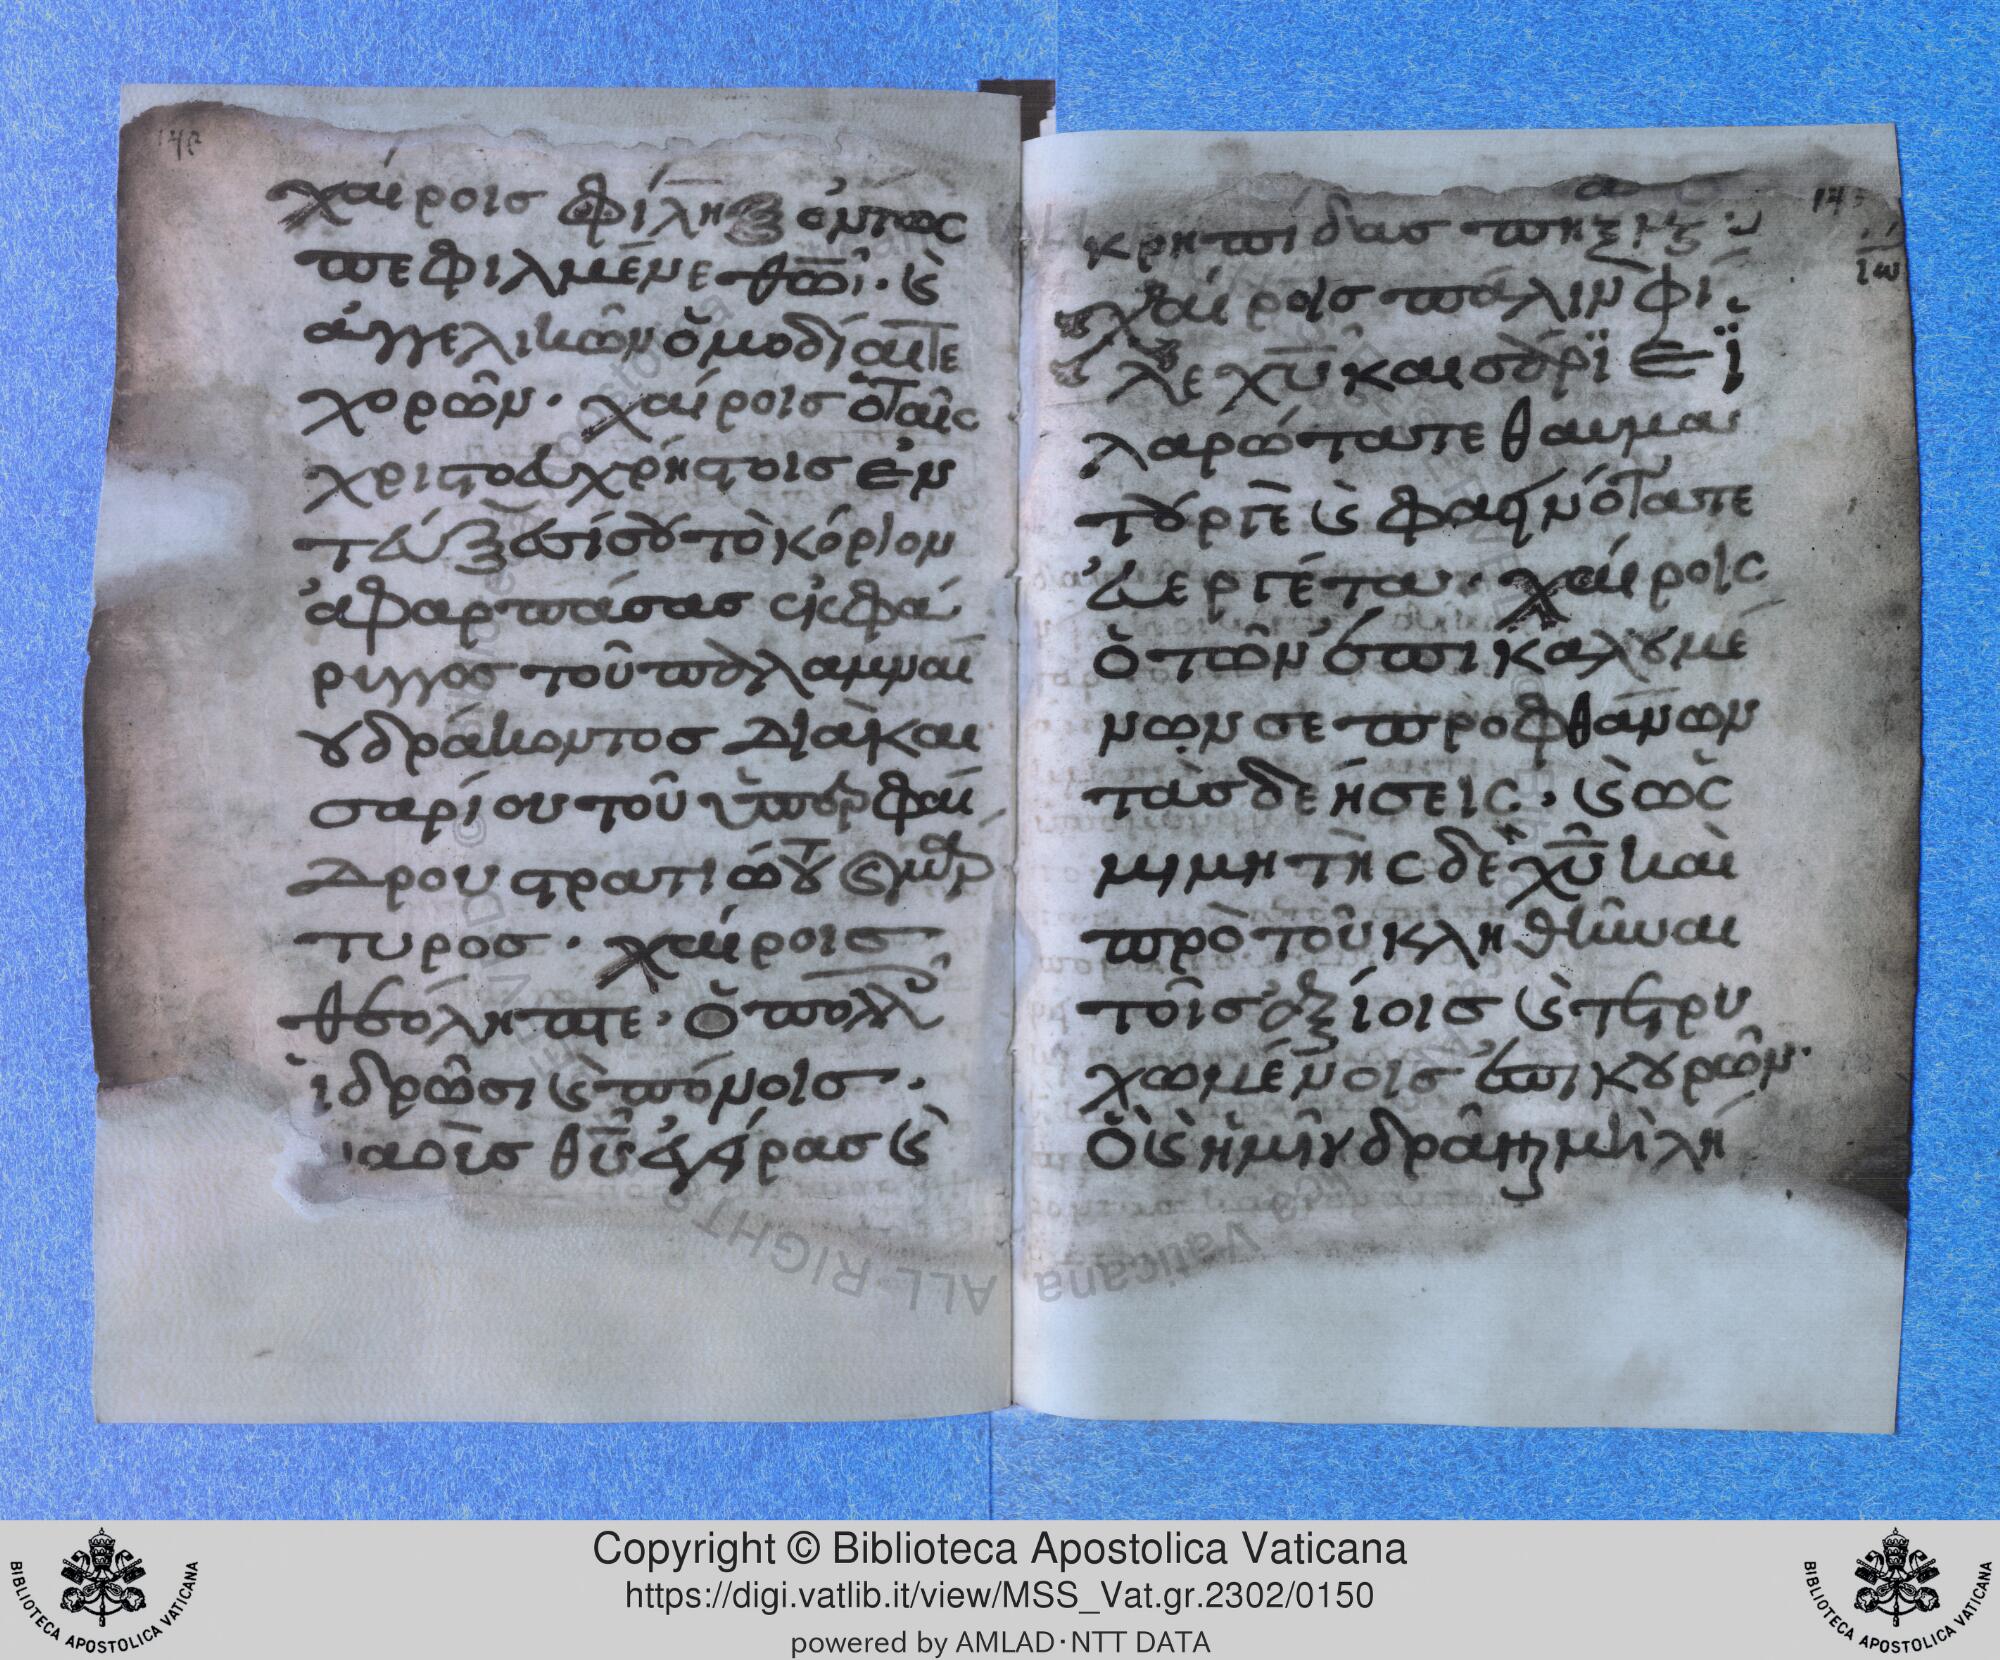 χαίροις φίληξ ὄντως
πεφιλμένε θῶι· κ(αὶ)
ἀγγελικῶν ὁμοδίαιτε
χορῶν· χαίροις ὁ ταῖς
χριστοῦ χρήστοις ἐν
τεύξεσί σου τὸ κόριον
ἀφαρπάσας ἐκ φά
ριγγος τοῦ παλαμναί
ου δράκοντος διὰ και
σαρίου τοῦ ὑπὲρ φαί
δρου στρατιώτου κ(αὶ) μάρ
τυρος· χαίροις
θεόληπτε· ὁ πολλοῖς
ἱδρῶσι κ(αὶ) πόνοις·
ναοὺς θῦ ἐγείρας κ(αὶ)
κρηπίδας πηξ
χαίροις πάλιν φί
λε χῦ καισάριε ἱ
λαρώτατε θαυμα
τουργὲ κ(αὶ) φαεινότατε
εὐεργέτα· χαίροις
ὁ τῶν ἐπικαλουμέ
νων σε προφθάνων
τὰς δεήσεις· κ(αὶ) ὡς
μιμητὴς δὲ χῦ καὶ
πρὸ τοῦ κληθῆναι
τοῖς ἀξίοις κ(αὶ) τρυ
χωμένοις ἐπικουρῶν·
ὁ κ(αὶ) ἡμῖν
Copyright © Biblioteca Apostolica Vaticana
https://digi.vatlib.it/view/MSS_Vat.gr.2302/0150
powered by AMLAD·NTT DATA
BIBLIOTECA APOSTOLICA VATICANA
BIBLIOTECA APOSTOLICA VATICANA